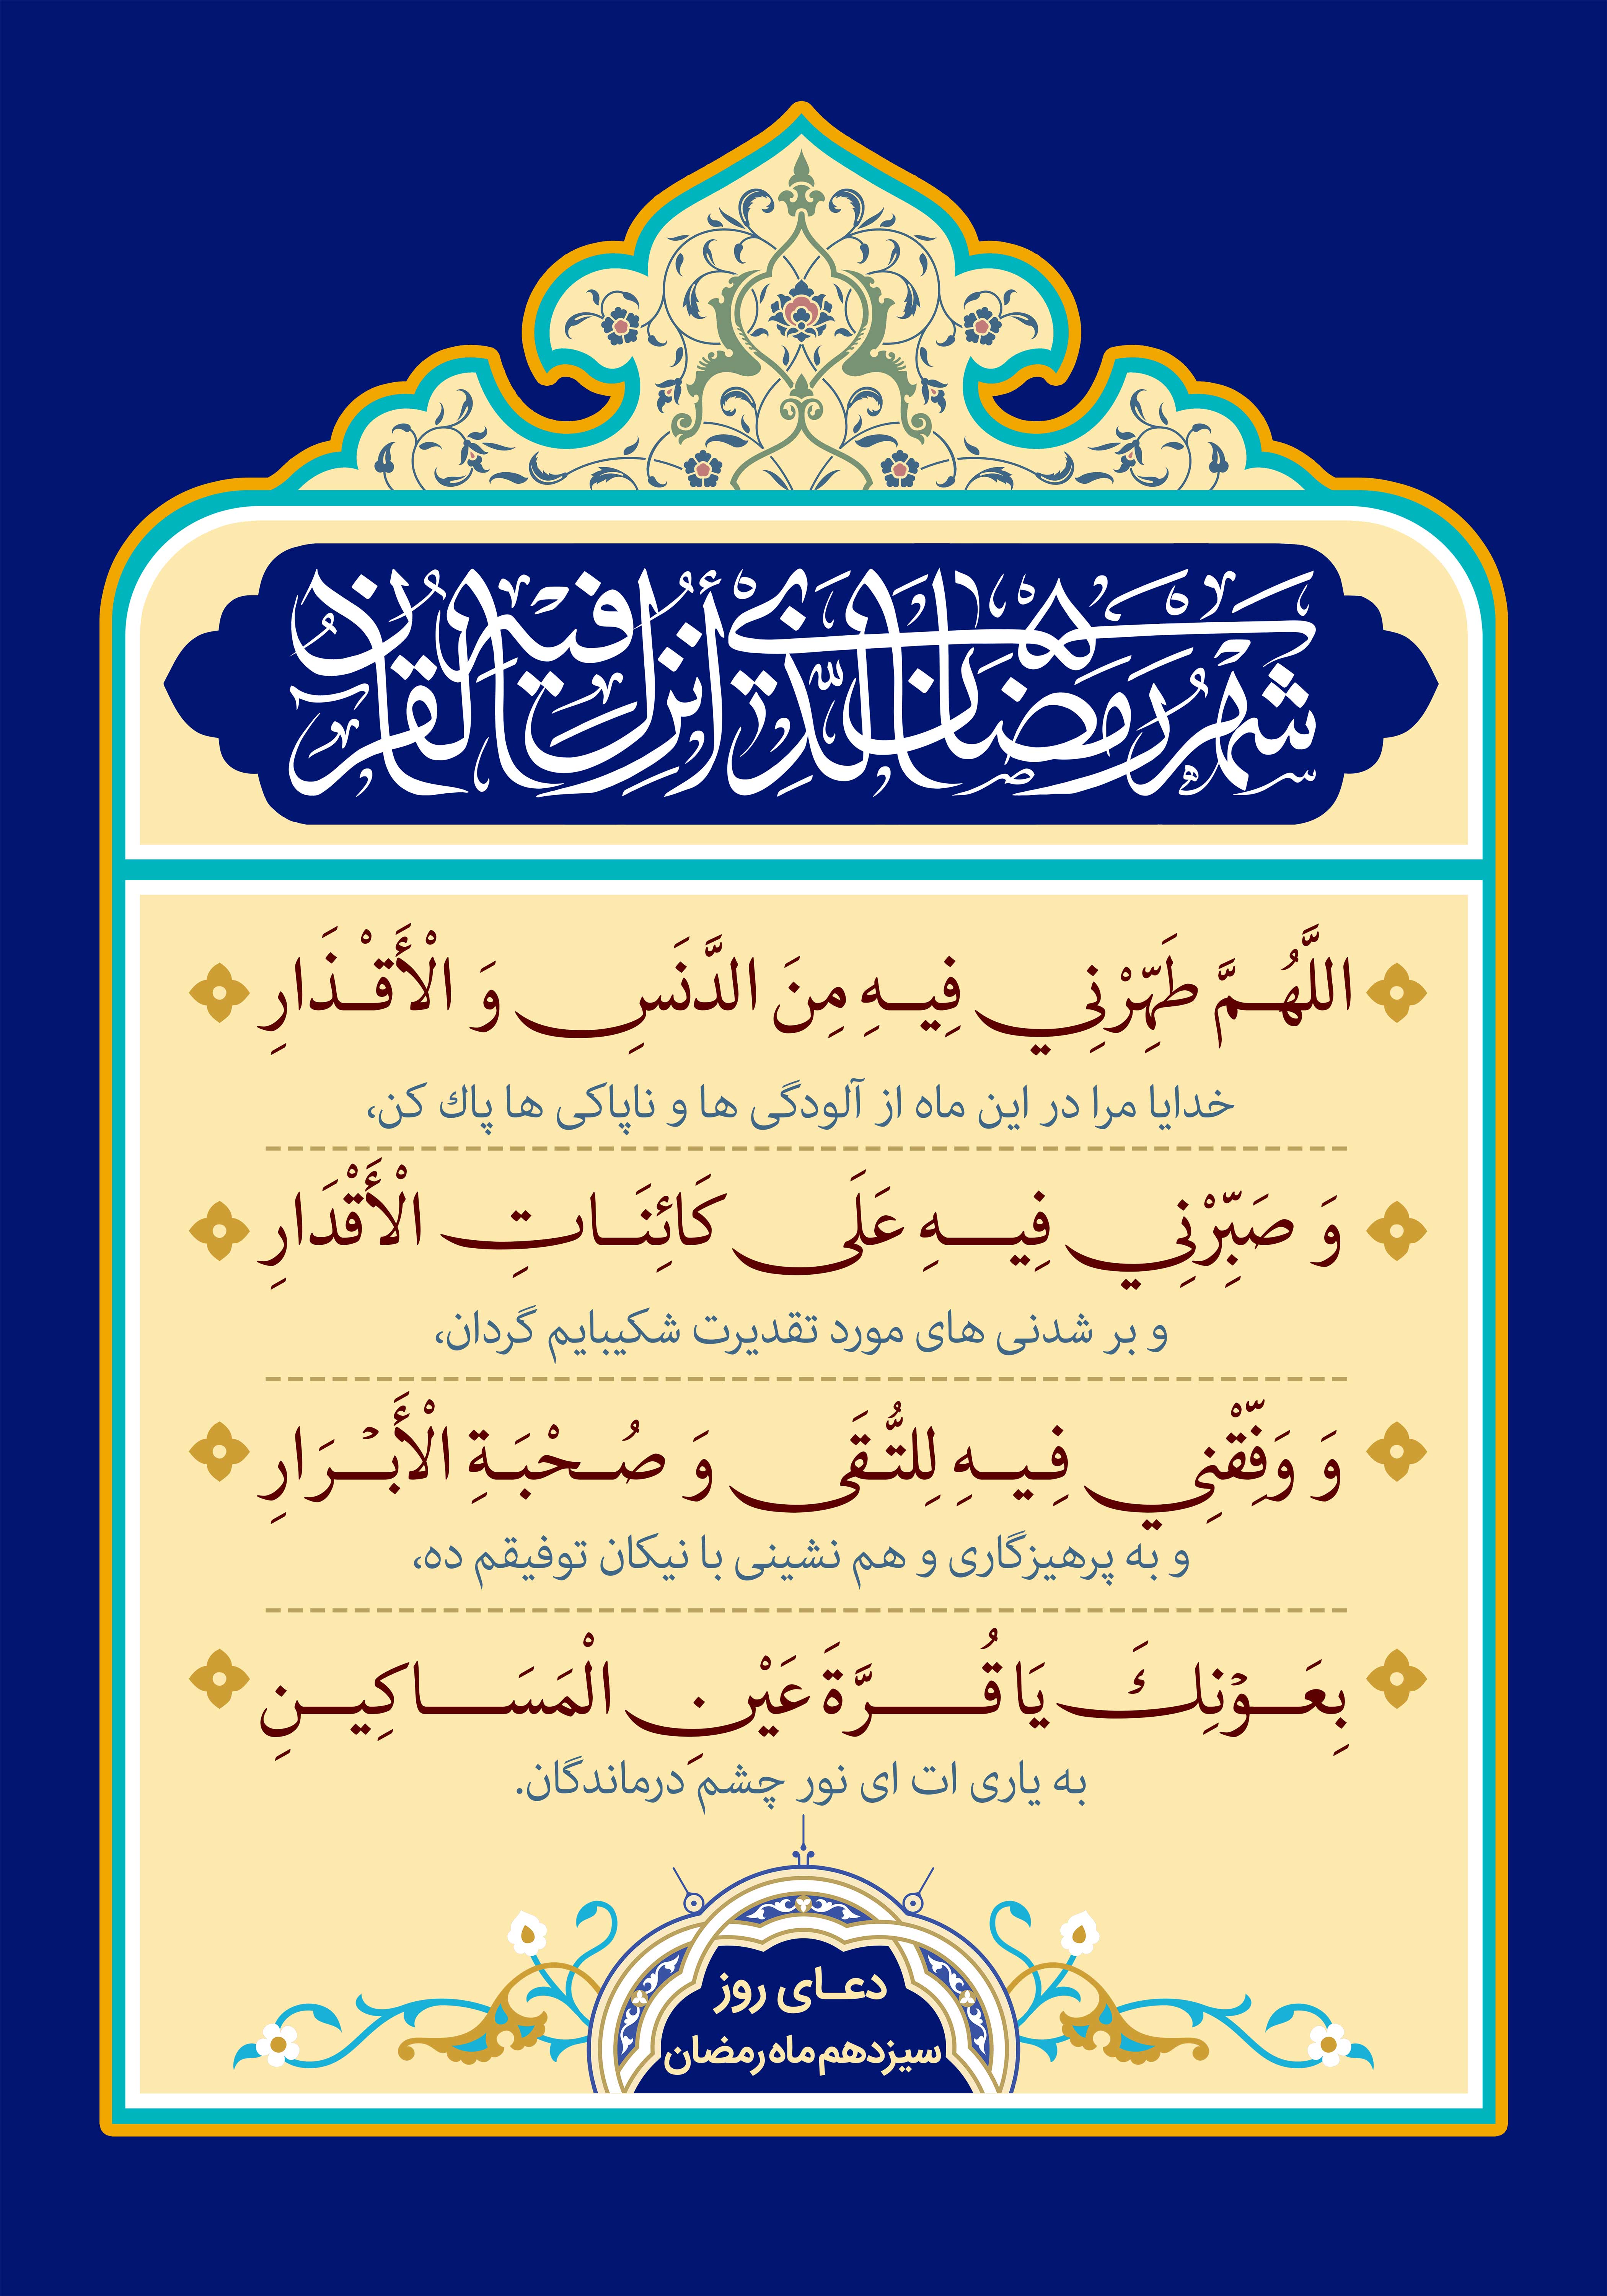 شهر رمضان الذي أنزل فيه القرآن
اللهُمَّ طَهِّرْنِي فِيهِ مِنَ الدَّنَسِ وَ الْأَقْذَارِ
خدایا مرا در این ماه از آلودگی ها و ناپاکی ها پاك کن،
وَ صَبِّرْنِي فِيهِ عَلَى كَائِنَاتِ الْأَقْدَارِ
و بر شدنی های مورد تقدیرت شکیبایم گردان،
وَ وَفِّقْنِي فِيهِ لِلتُّقَى وَ صُحْبَةِ الْأَبْرَارِ
و به پرهیزگاری و هم نشینی با نیکان توفیقم ده،
بِعَوْنِكَ يَا قُرَّةَ عَيْنِ الْمَسَاكِينِ
به یاری ات ای نور چشم درماندگان.
دعای روز
سیزدهم ماه رمضان